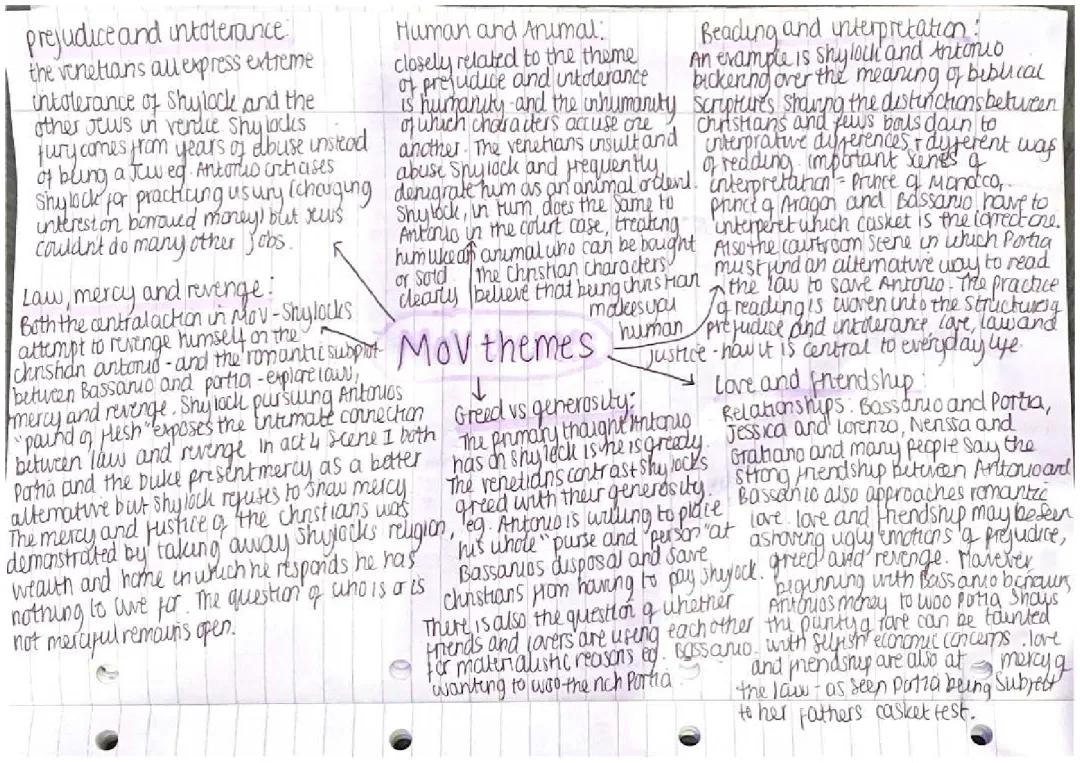 prejudice and intolerance:
the venetians all express extreme
intolerance of Shylock and the
other Jews in venice. Shylocks
fury comes from years of abuse instead
of being a Jew eg. Antonio critiases
Shylock for practicing usury (charging
interest on borrowed money) but Jews
couldnt do many other jobs.
Human and Animal:
closely related to the theme
of prejudice and intolerance
is humanity - and the inhumanity
of which characters accuse one
another. The venetians insult and
abuse Shylock and frequently
denigrate him as an animal or devil.
Shylock, in turn, does the same to
Antonio in the court case, treating
him like an animal who can be bought
or sold. The christian characters
clearly believe that being christian
makes you
human
Reading and interpretation:
An example is Shylock and Antonio
bickering over the meaning of biblical
scriptures sharing the distinctions between
christians and jews boils down to
interprative differences + different ways
of reading. important scenes of
interpretation = Prince of Morocco,
prince of Aragon and Bassanio have to
interpret which casket is the correct one.
Also the courtroom scene in which Portia
must find an alternative way to read
the law to save Antonio. The practice
of reading is woven into the structure of
prejudice and intolerance, love, law and
justice - how it is central to everyday life.
MoV themes
Law, mercy and revenge:
Both the central action in MoV - Shylocks
attempt to revenge himself on the
christian antonio - and the romantic subplot
between Bassanio and portia - explore law,
mercy and revenge. Shylock pursuing Antonios
"pound of flesh" exposes the intimate connection
between law and revenge. In act 4 scene 1 both
Portia and the Duke present mercy as a better
alternative but Shylock refuses to show mercy
The mercy and justice of the christians was
demonstrated by taking away Shylocks religion,
wealth and home in which he responds he has
nothing to live for. The question of who is or is
not merciful remains open.
Greed vs generosity:
The primary thought Antonio
has on shylock is he is greedy.
The venetians contrast shylocks
greed with their generosity.
eg. Antonio is willing to place
his whole "purse and "person" at
Bassanios disposal and save
christians from having to pay shylock.
There is also the question of whether
friends and lovers are using each other
for materialistic reasons eg. Bassanio
wanting to woo the rich Portia
Love and friendship:
Relationships: Bassanio and Portia,
Jessica and Lorenzo, Nerissa and
Gratiano and many people say the
strong friendship between Antonio and
Bassanio also approaches romantic
love. love and friendship may be seen
as having ugly emotions of prejudice,
greed and revenge. However
beginning with Bassanio borrows
Antonios money to woo Portia shows
the purity of love can be tainted
with selfish economic concerns. love
and friendship are also at mercy of
the law - as seen Portia being Subject
to her fathers casket test.